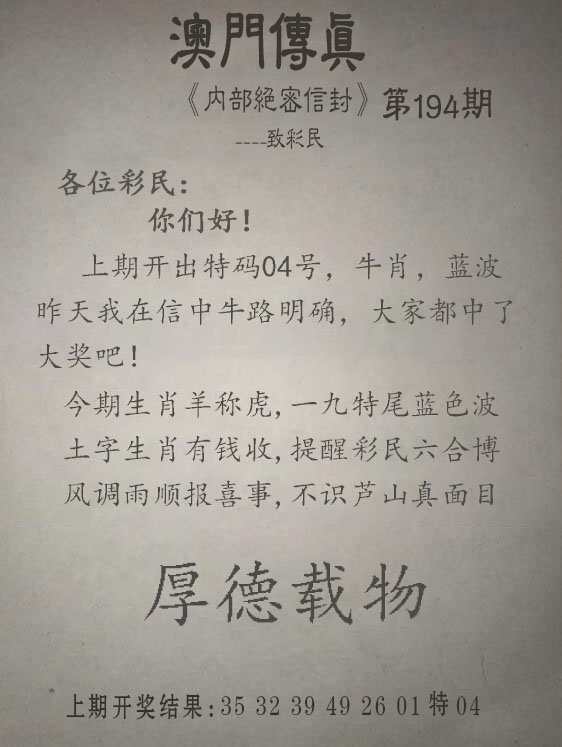 澳門傳眞
《内部絕密信封》第194期
----致彩民
各位彩民：
你们好！
上期开出特码04号，牛肖，蓝波
昨天我在信中牛路明确，大家都中了
大奖吧！
今期生肖羊称虎,一九特尾蓝色波
土字生肖有钱收,提醒彩民六合博
风调雨顺报喜事,不识芦山真面目
厚德载物
上期开奖结果:35 32 39 49 26 01 特 04